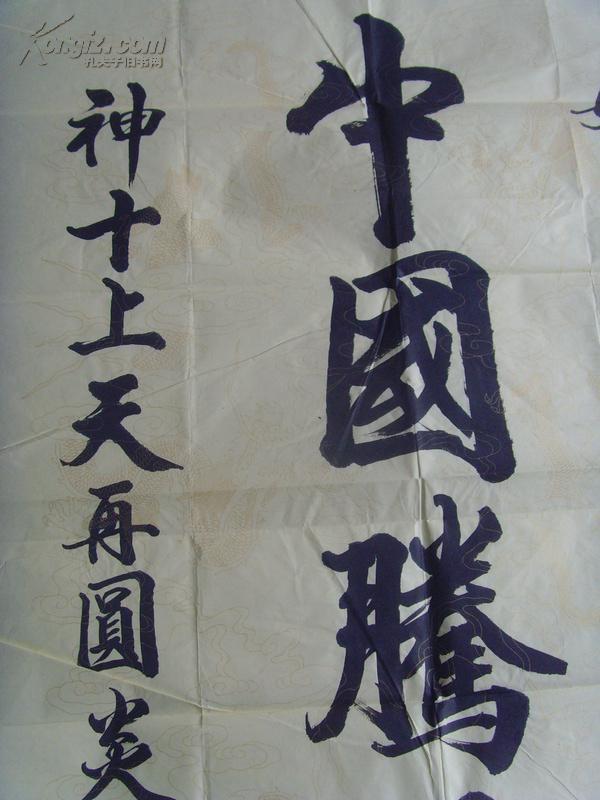 Kongfz.com
孔夫子旧书网
中國騰
神十上天再圓炎